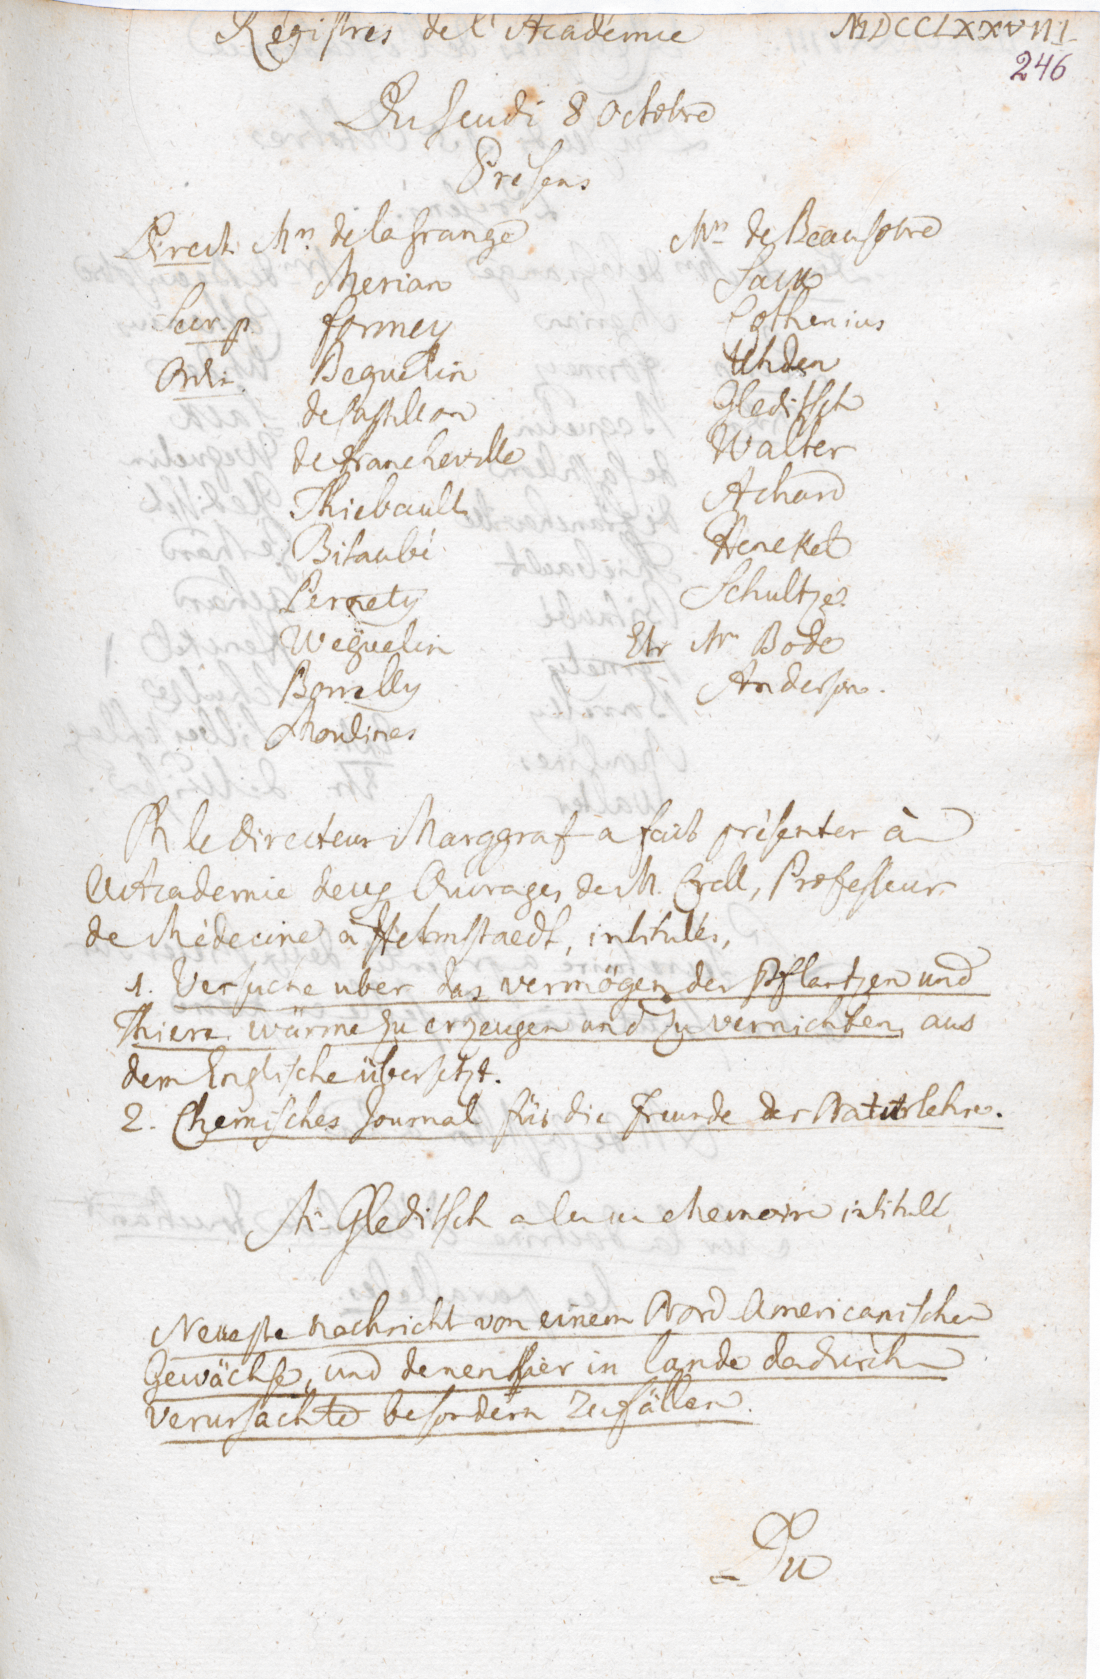 Régistres de l'Académie MDCCLXXVIII
246
Du Jeudi 8 Octobre
Présens
Direct. Mrs. de la Grange
Merian
Secr. p. Formey
Ordi. Beguelin
de Castillon
de Francheville
Thiebault
Bitaubé
Pernety
Weguelin
Borrelly
Moulines
Mrs de Beausobre
Sack
Cothenius
Uhden
Gleditsch
Walter
Achard
Henckel
Schultze.
Etr Mrs Bode
Anderson.
Mr le Directeur Marggraf a fait présenter à
l'Academie deux Ouvrages de M. Crell, Professeur
de Médecine à Helmstaedt, intitulés,
1. Versuche uber das vermögen der Pflantzen und
Thiere wärme zu erzeugen und zu vernichten, aus
dem Englische übersetzt.
2. Chemisches Journal für die freunde der Naturlehre.
Mr Gleditsch a lu un Memoire intitulé
Neueste nachricht von einem Nord Americanischen
Gewächse, und denen hier in lande dadurch
verursachte besondern Zufällen.
Du